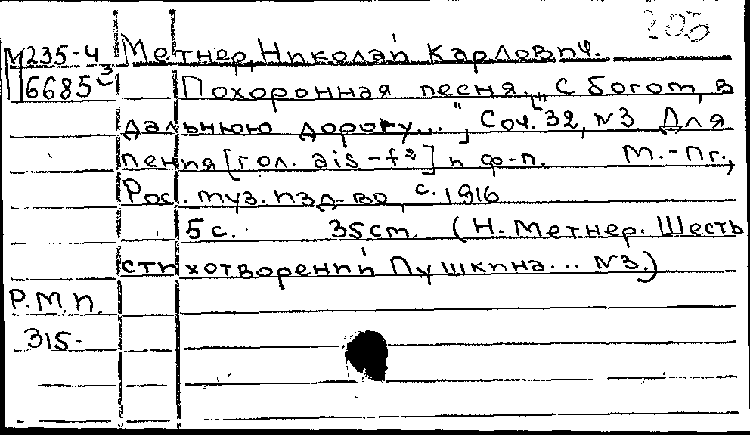 205
М235-4 Метнер, Николай Карлович.
6685³ Похоронная песня. „С богом, в
дальнюю дорогу...", Соч. 32, №3 Для
пения [гол. ais-f²] и ф-п. М.-Пг.,
Рос. муз. изд-во, с. 1916
5 с. 35cm. (Н. Метнер. Шесть
стихотворений Пушкина... №3.)
Р.М.И.
315-